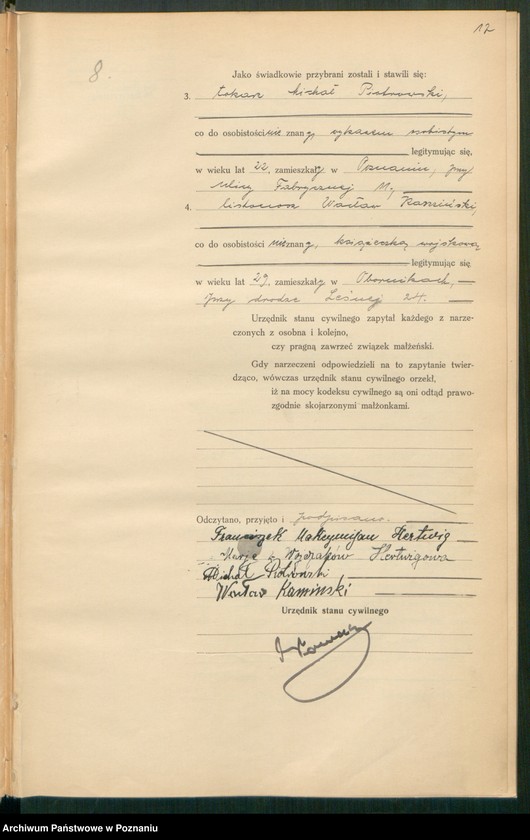 12
8.
Jako świadkowie przybrani zostali i stawili się:
3. tokarz Michał Piotrowski,
co do osobistości nie znany, wykazem osobistym
legitymując się,
w wieku lat 22, zamieszkały w Poznaniu, przy
ulicy Fabrycznej
4. listonosz Wacław Kamiński,
co do osobistości nieznany, książeczką wojskową
legitymując się
w wieku lat 29, zamieszkały w Obornikach,
przy drodze Leśnej 24.
Urzędnik stanu cywilnego zapytał każdego z narze-
czonych z osobna i kolejno,
czy pragną zawrzeć związek małżeński.
Gdy narzeczeni odpowiedzieli na to zapytanie twier-
dząco, wówczas urzędnik stanu cywilnego orzekł,
iż na mocy kodeksu cywilnego są oni odtąd prawo-
zgodnie skojarzonymi małżonkami.
Odczytano, przyjęto i podpisano.
Franciszek Maksymiljan Hertwig
z Hertwigowa
Michał Piotrowski
Wacław Kamiński
Urzędnik stanu cywilnego
Archiwum Państwowe w Poznaniu